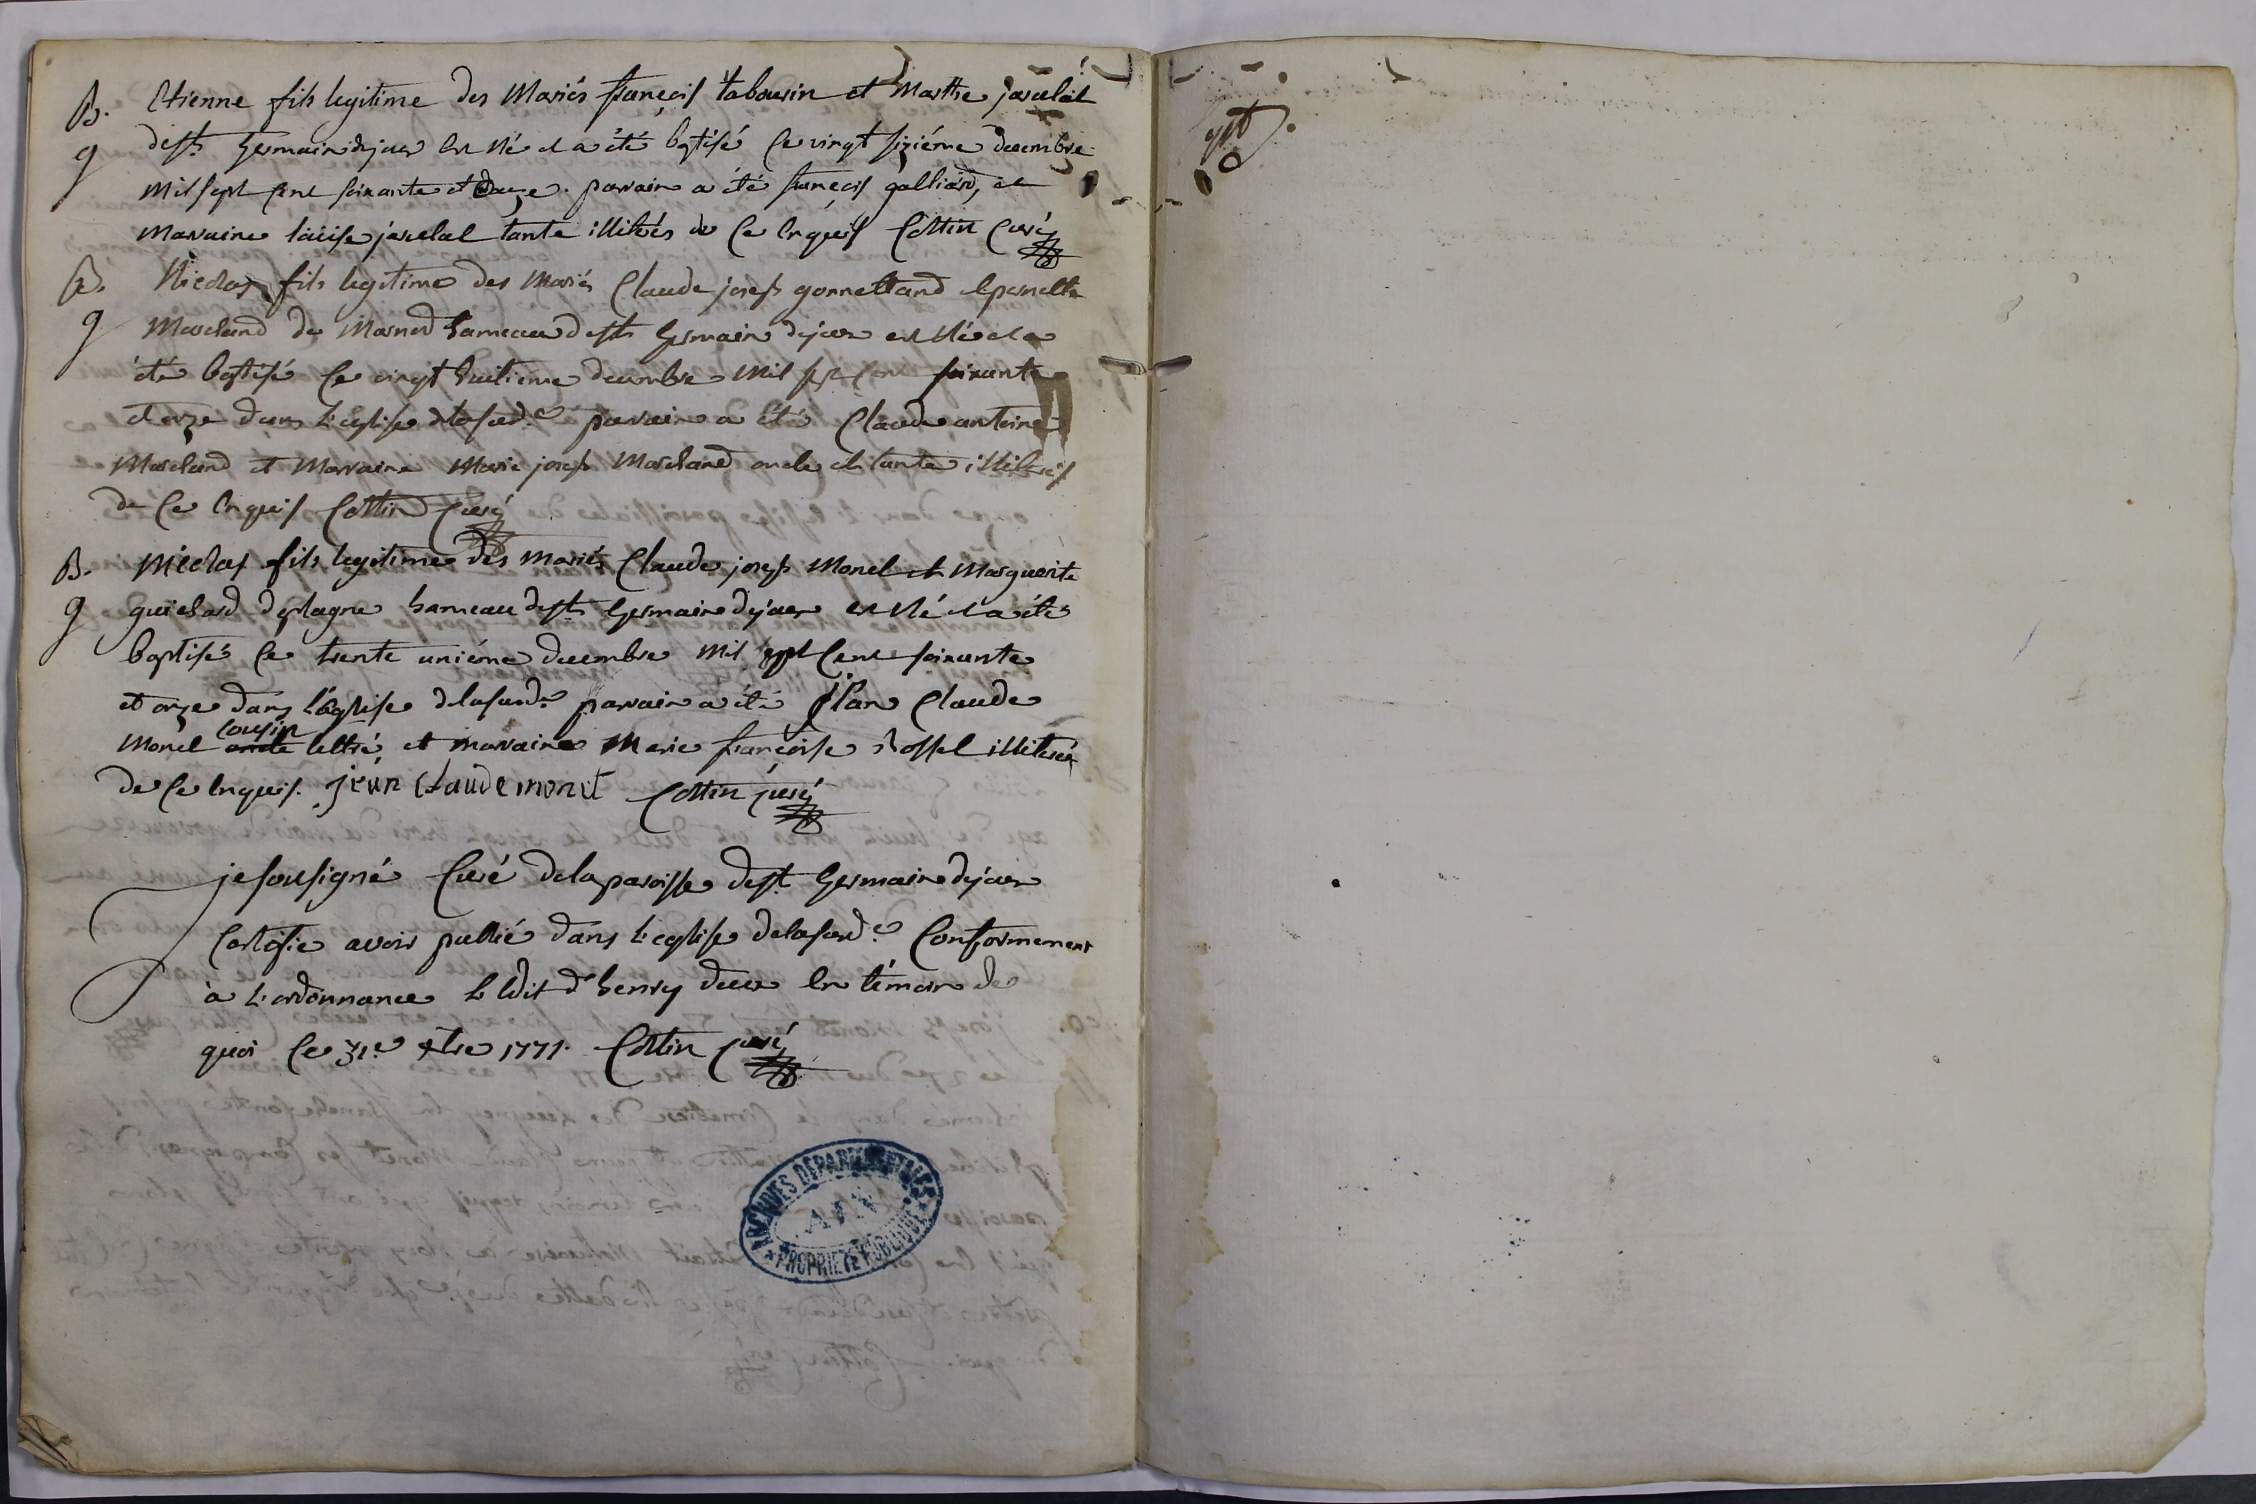 B. Etienne fils legitime des Mariés françois tabourin et Marthe javelat
g de st. Germain de joux est né et a été batisé ce vingt sixiéme decembre
mil sept cent soixante et onze. parrain a été françois galliard, et
marraine loüise javelat tante illiterés de ce enquis Cottin Curé
B. Nicolas fils legitime des Mariés Claude joseph gonnettand et pernette
g Marchand de Marnod hameau de st. Germain de joux est né et a
été batisé ce vingt huitieme decembre mil sept cent soixante
et onze dans l'eglise de la susd.e parrain a été Claude antoine
Marchand et Marraine Marie joseph Marchand oncle et tante illiterés
de ce enquis Cottin Curé
B. Nicolas fils legitime des mariés Claude joseph Monet et Marguerite
g guichard de plagne hameau de st. Germain de joux est né et a été
baptisé ce trente uniéme decembre mil sept cent soixante
et onze dans l'église de la susd.e parrain a été Claude
cousin
Monet oncle lettré et marraine Marie françoise rossel illiterée
de ce enquis. jean Claude monet Cottin Curé
je sousigné Curé de la paroisse de st. Germain de joux
Certifie avoir publié dans l'eglise de la susd.e Conformement
à l'ordonnance l'Edit d'henry deux en témoin de
quoi ce 31.e xbre 1771. Cottin Curé
ARCHIVES DEPARTEMENTALES
AIN
PROPRIETE PUBLIQUE